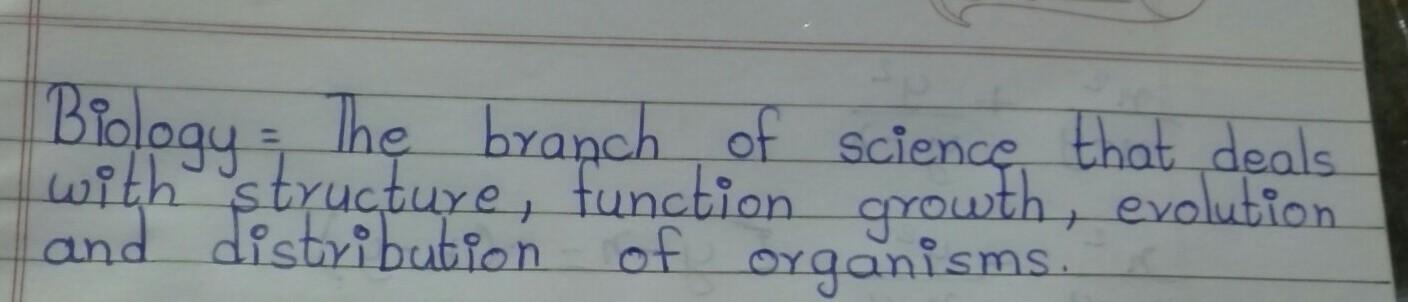 Biology = The branch of science that deals
with structure, function growth, evolution
and distribution of organisms.